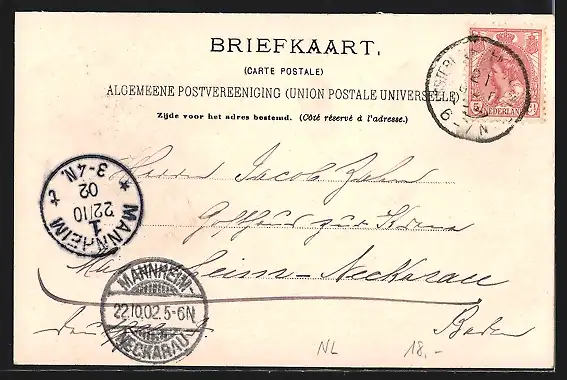 BRIEFKAART.
(CARTE POSTALE)
ALGEMEENE POSTVEREENIGING (UNION POSTALE UNIVERSELLE)
Zijde voor het adres bestemd. (Côté réservé à l'adresse.)
NEDERLAND
6-7N
Herrn Jacob Zahn
zur Krone
Mannheim-Neckarau
Baden
MANNHEIM
1
22/10
02
3-4N.
MANNHEIM
22.10.02.5-6N
NECKARAU
NL 18,-